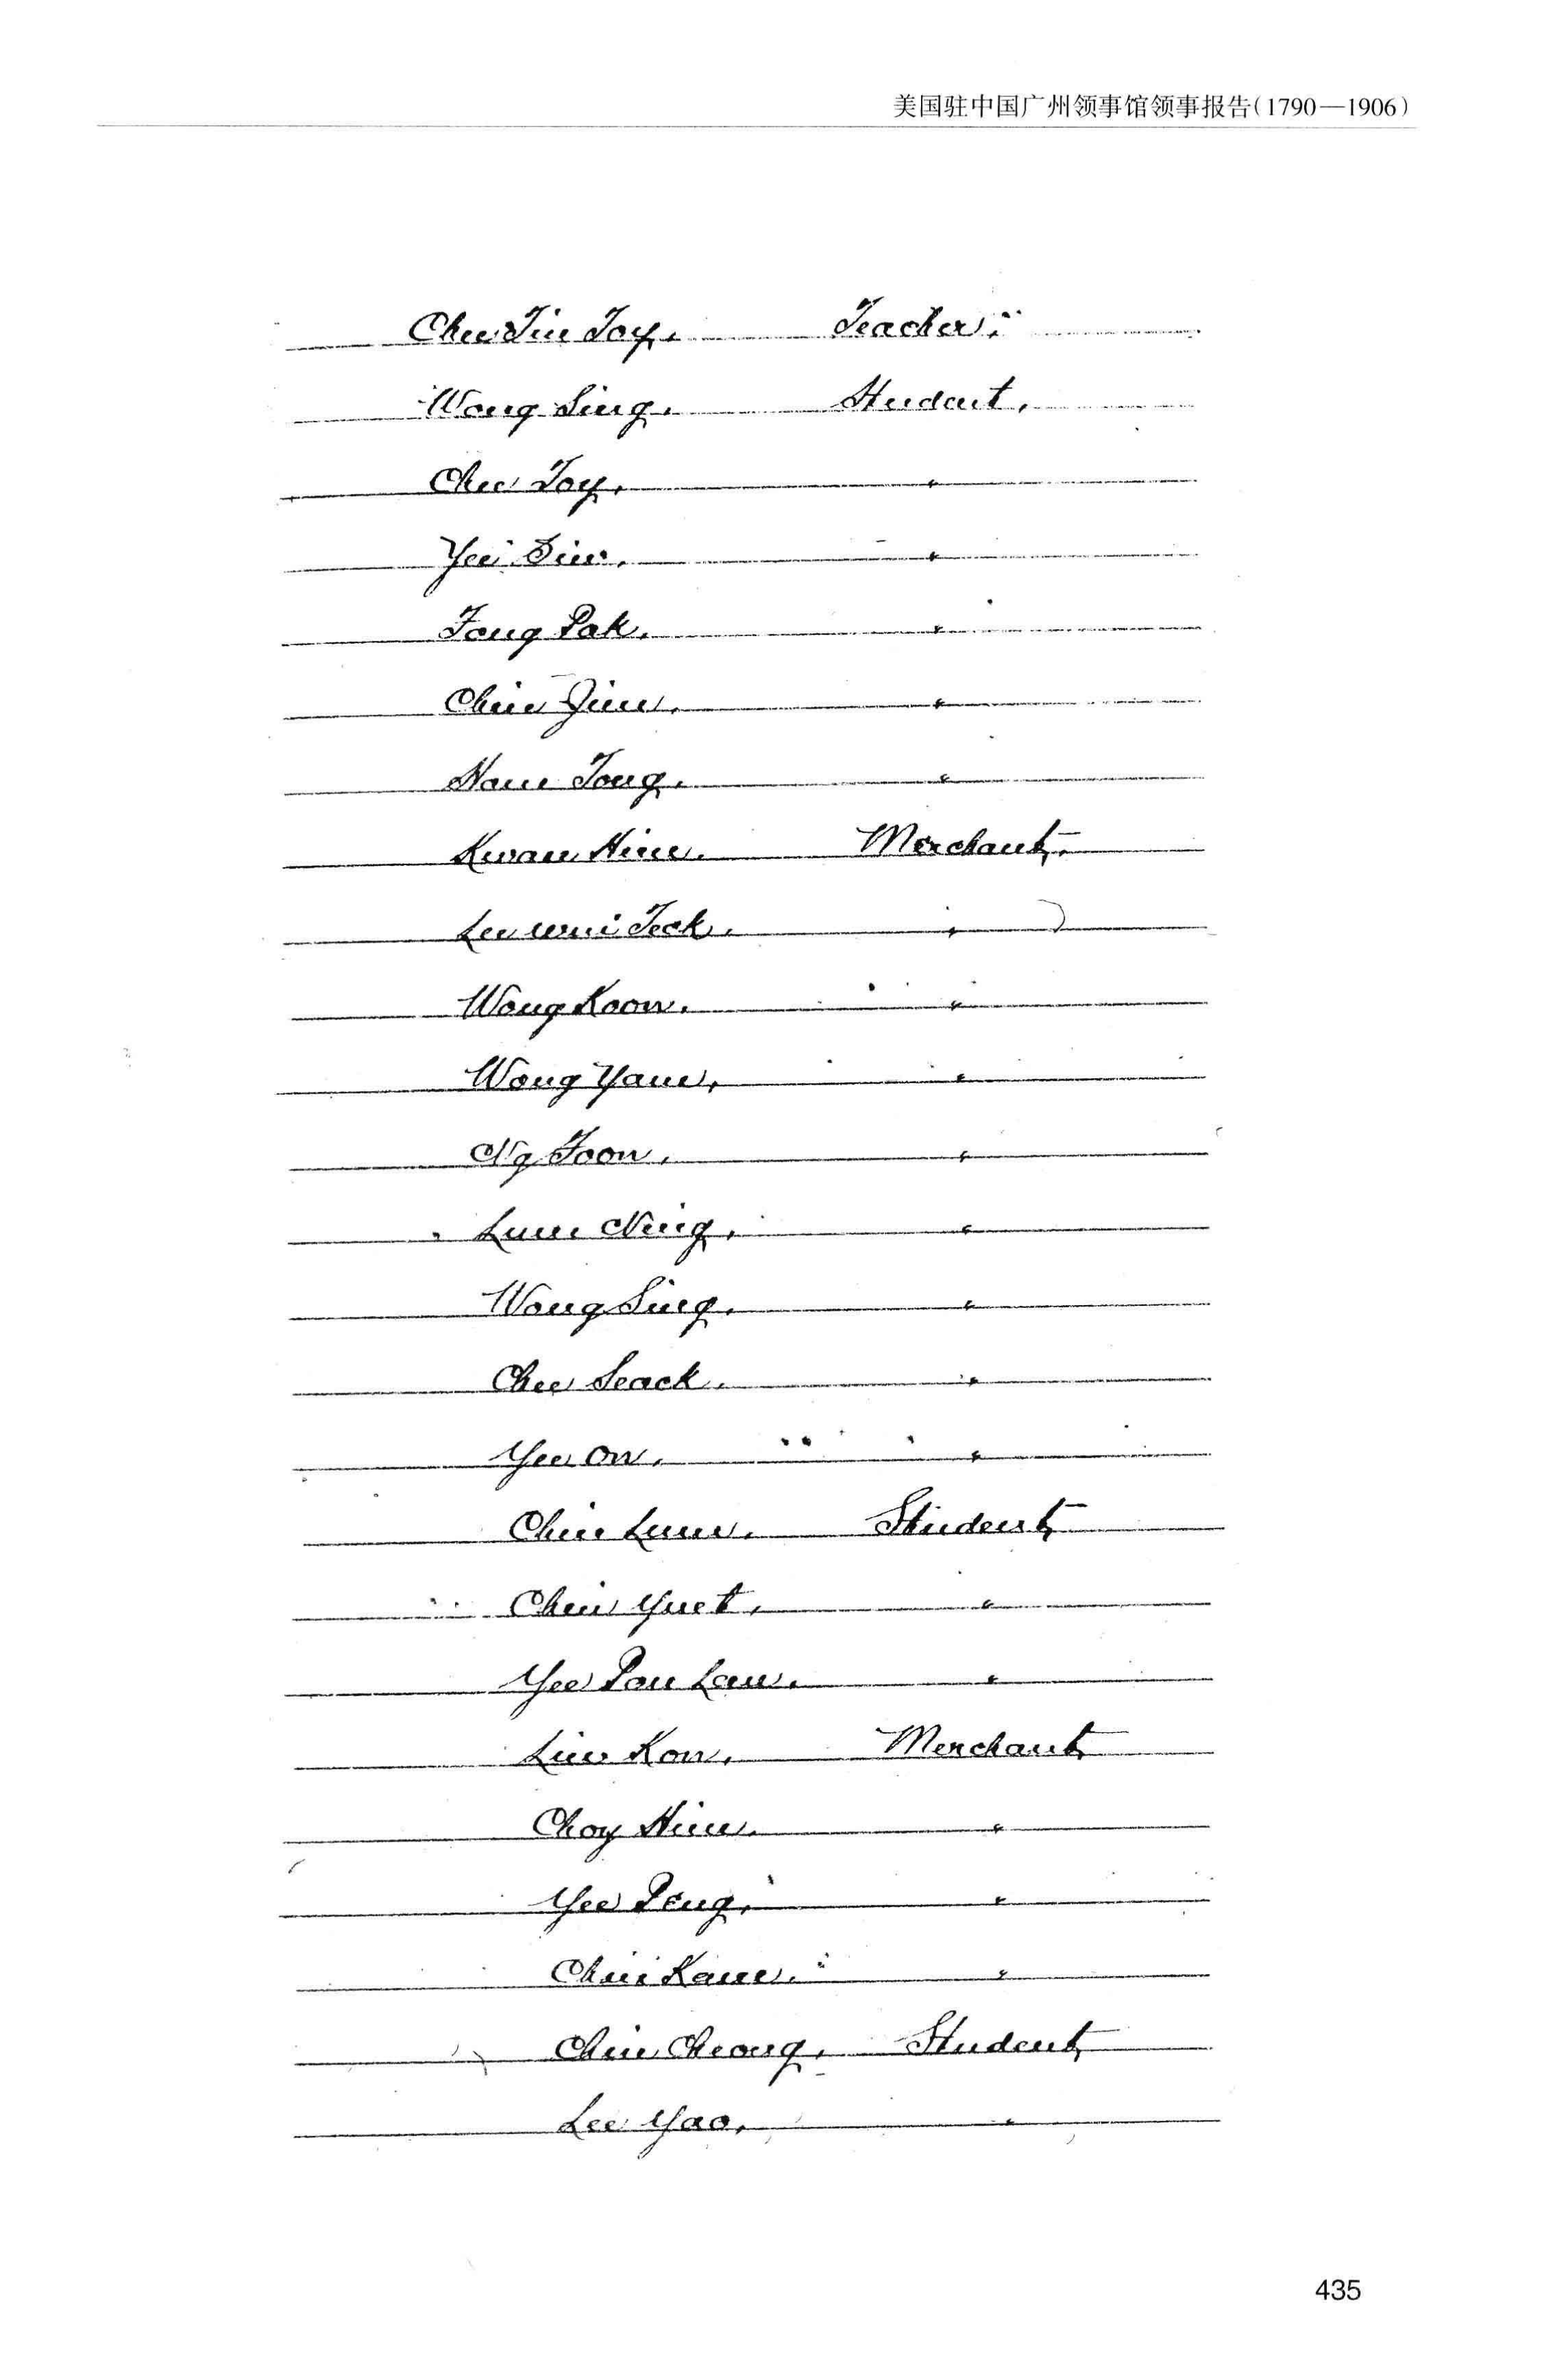 美国驻中国广州领事馆领事报告(1790—1906)
Chu Tin Toy. Teacher.
Wong Sing. Student.
Chee Toy. "
Yee Siw. "
Fong Pak. "
Chin Jim. "
Nam Tong. "
Kwan Him. Merchant.
Lee Wui Teck. "
Wong Koon. "
Wong Yam, "
Ng Foon. "
Lum Ning. "
Wong Sing. "
Chee Seack. "
Yee On. "
Chin Lum. Student,
Chin Yuet, "
Yee Pau Lau. "
Liu Kon, Merchant,
Choy Him. "
Yee Peng. "
Chin Kam. "
Chin Cheong. Student,
Lee Yao, "
435